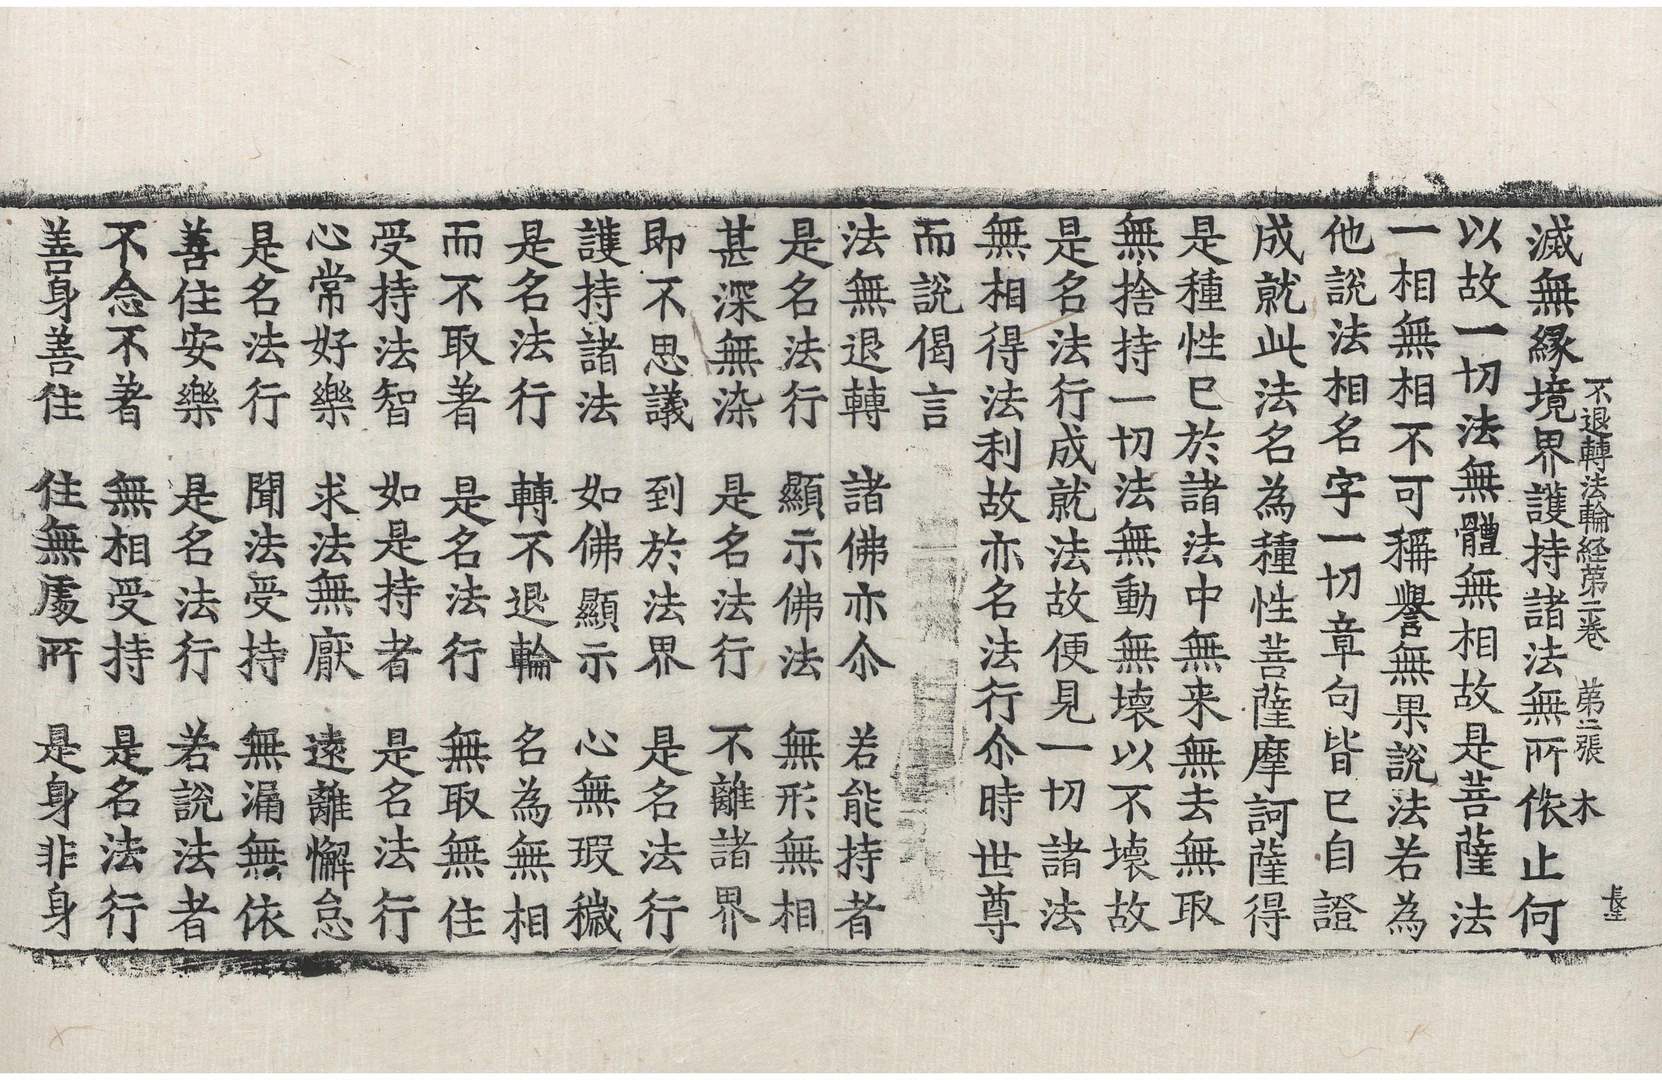 不退轉法輪経第二卷 第二張 木
滅無縁境界護持諸法無所依止何
以故一切法無體無相故是菩薩法
一相無相不可稱譽無果說法若為
他說法相名字一切章句皆已自證
成就此法名為種性菩薩摩訶薩得
是種性已於諸法中無来無去無取
無捨持一切法無動無壞以不壞故
是名法行成就法故便見一切諸法
無相得法利故亦名法行尒時世尊
而說偈言
法無退轉 諸佛亦尒 若能持者
是名法行 顯示佛法 無形無相
甚深無染 是名法行 不離諸界
即不思議 到於法界 是名法行
護持諸法 如佛顯示 心無瑕穢
是名法行 轉不退輪 名為無相
而不取著 是名法行 無取無住
受持法智 如是持者 是名法行
心常好樂 求法無厭 遠離懈怠
是名法行 聞法受持 無漏無依
善住安樂 是名法行 若說法者
不念不著 無相受持 是名法行
善身善住 住無處所 是身非身